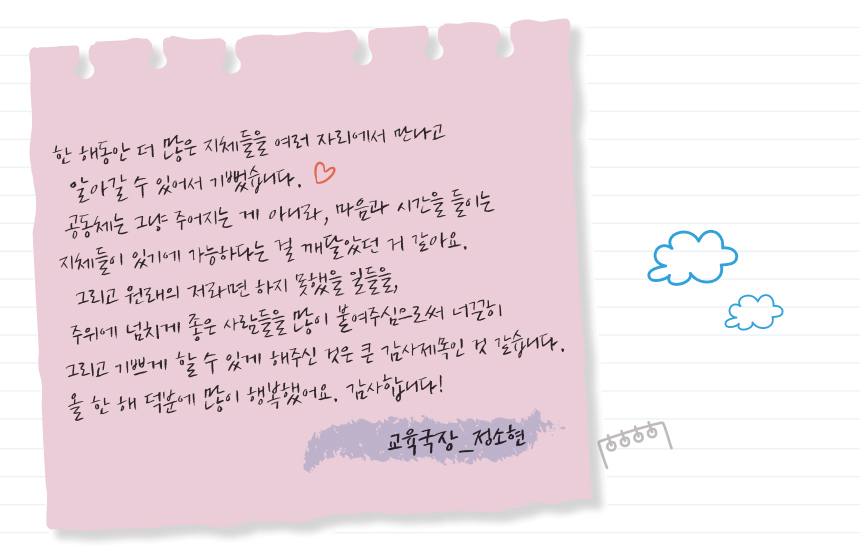 한 해동안 더 많은 지체들을 여러 자리에서 만나고
알아갈 수 있어서 기뻤습니다.
공동체는 그냥 주어지는 게 아니라, 마음과 시간을 들이는
지체들이 있기에 가능하다는 걸 깨달았던 거 같아요.
그리고 원래의 저라면 하지 못했을 일들을,
주위에 넘치게 좋은 사람들을 많이 붙여주심으로써 너끈히
그리고 기쁘게 할 수 있게 해주신 것은 큰 감사제목인 것 같습니다.
올 한 해 덕분에 많이 행복했어요. 감사합니다!
교육국장_정소현